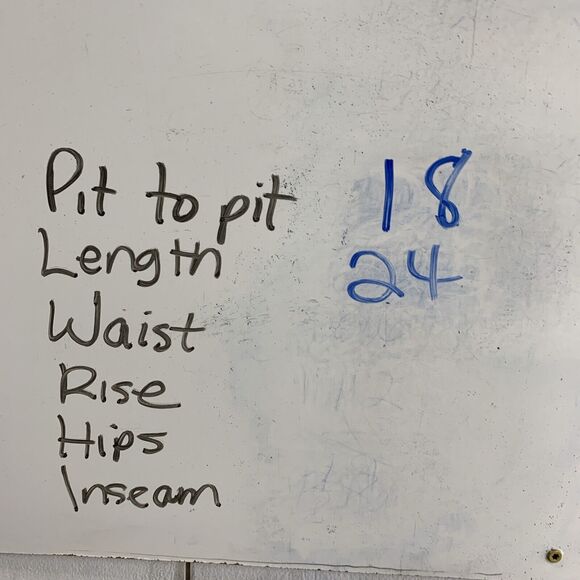 Pit to pit 18
Length 24
Waist
Rise
Hips
Inseam